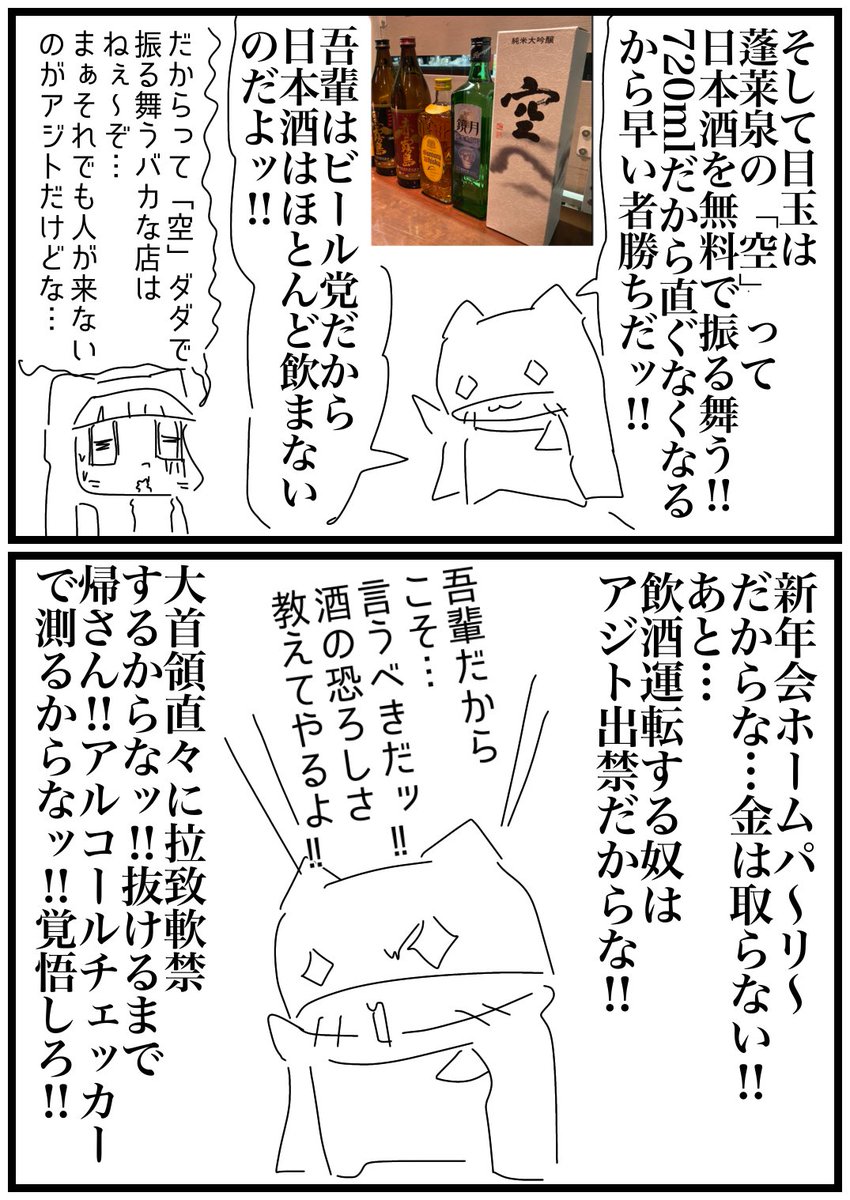 そして目玉は
蓬莱泉の「空」って
日本酒を無料で振る舞う!!
720mlだから直ぐなくなる
から早い者勝ちだッ!!
純米大吟醸
空
鏡月
吾輩はビール党だから
日本酒はほとんど飲まない
のだよッ!!
だからって「空」ダダで
振る舞うバカな店は
ねぇ〜ぞ…
まぁそれでも人が来ない
のがアジトだけどな…
新年会ホームパ〜リ〜
だからな…金は取らない!!
あと…
飲酒運転する奴は
アジト出禁だからな!!
吾輩だから
こそ…
言うべきだッ!!
酒の恐ろしさ
教えてやるよ!!
大首領直々に拉致軟禁
するからなッ!!抜けるまで
帰さん!!アルコールチェッカー
で測るからなッ!!覚悟しろ!!